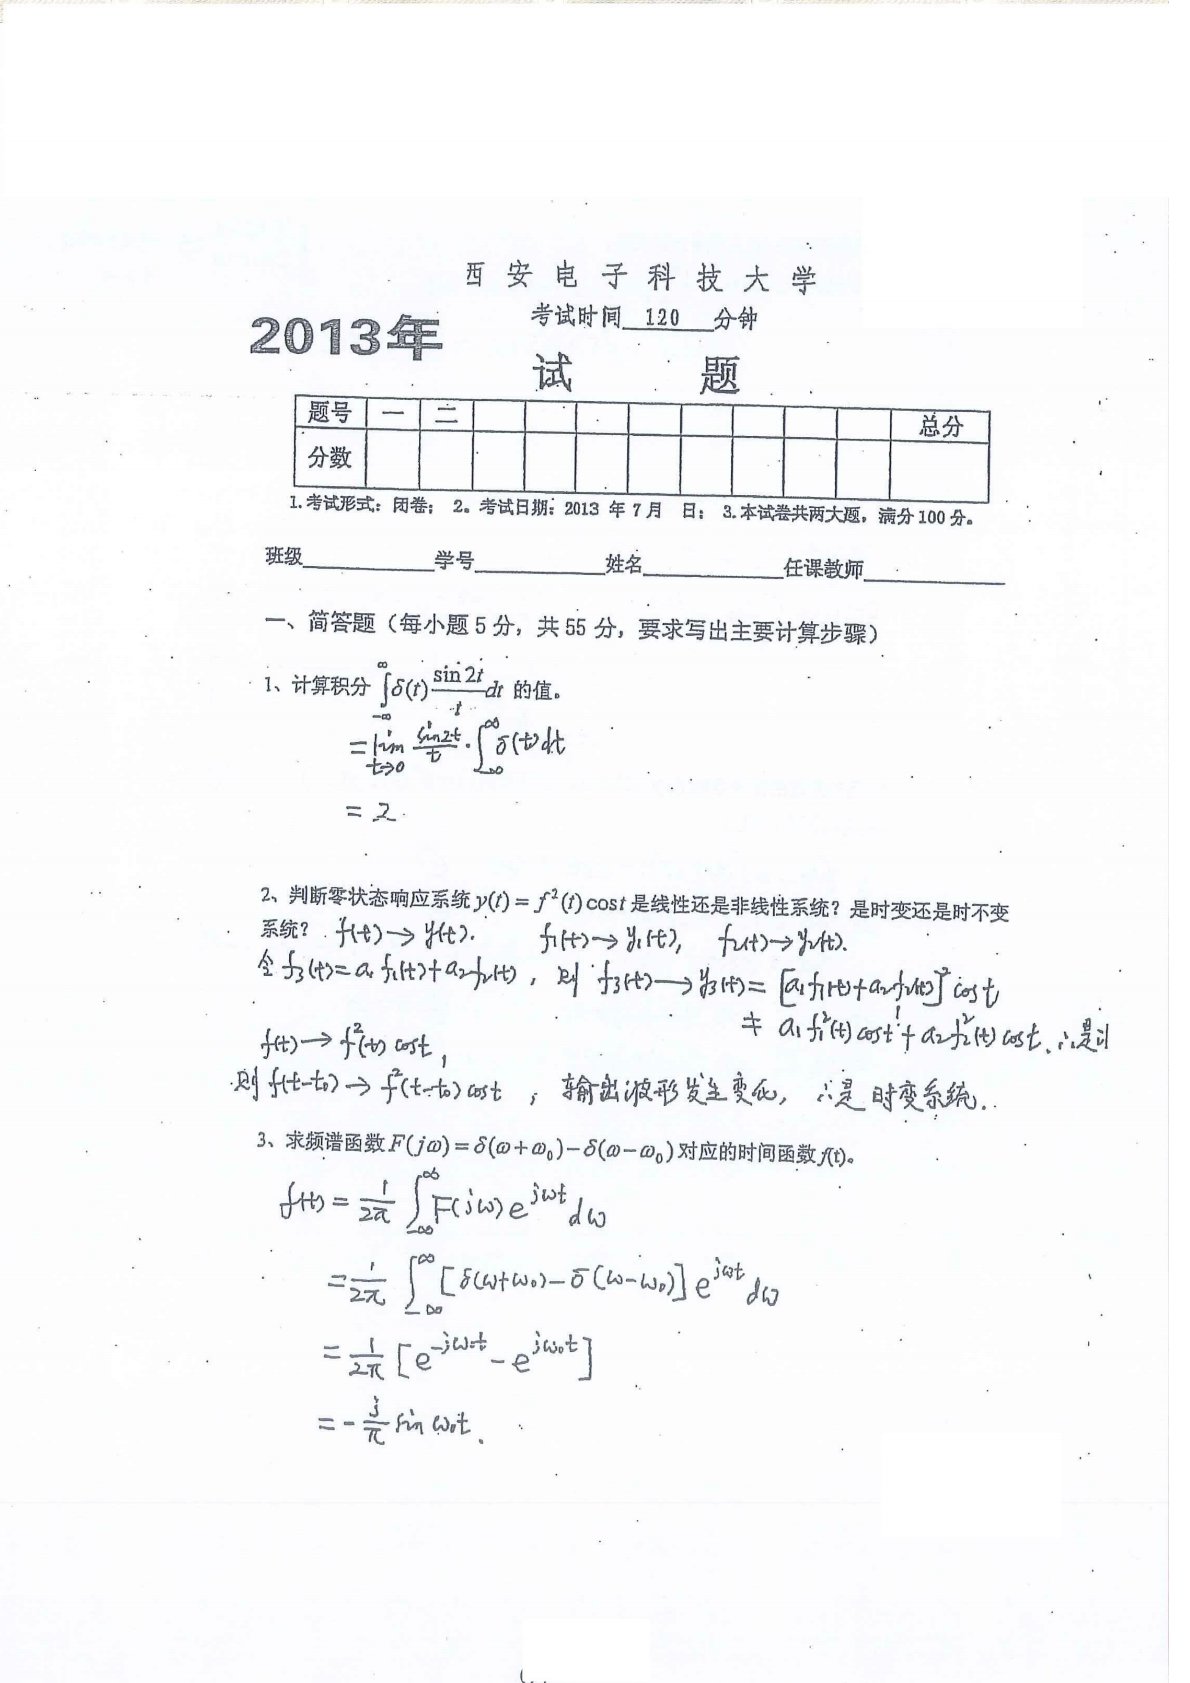 西安电子科技大学
考试时间 120 分钟
2013年
试 题
题号 一 二 总分
分数
1.考试形式：闭卷；2。考试日期：2013 年 7 月 日；3.本试卷共两大题，满分100分。
班级____________学号____________姓名____________任课教师____________
一、简答题（每小题 5 分，共 55 分，要求写出主要计算步骤）
1、计算积分 ∫_{-∞}^{∞} δ(t) (sin 2t / t) dt 的值。
= lim_{t→0} (sin2t / t) · ∫_{-∞}^{∞} δ(t)dt
= 2.
2、判断零状态响应系统 y(t) = f²(t) cos t 是线性还是非线性系统？是时变还是时不变
系统？ f(t)→y(t). f₁(t)→y₁(t), f₂(t)→y₂(t).
令 f₃(t)=a₁f₁(t)+a₂f₂(t)，则 f₃(t)→y₃(t)=[a₁f₁(t)+a₂f₂(t)]² cos t
≠ a₁f₁²(t)cost + a₂f₂²(t)cost. ∴是
f(t)→f²(t)cost,
则f(t-t₀)→f²(t-t₀)cost，输出波形发生变化，∴是时变系统.
3、求频谱函数 F(jω) = δ(ω+ω₀) − δ(ω−ω₀) 对应的时间函数 f(t)。
f(t) = 1/2π ∫_{-∞}^{∞} F(jω) e^{jωt} dω
= 1/2π ∫_{-∞}^{∞} [δ(ω+ω₀) − δ(ω−ω₀)] e^{jωt} dω
= 1/2π [e^{-jω₀t} − e^{jω₀t}]
= − j/π sin ω₀t.